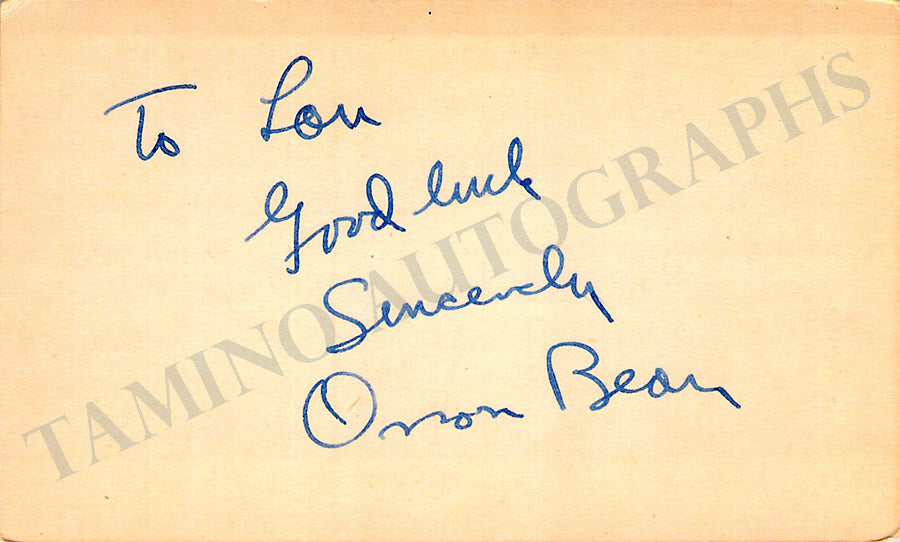 To Lou
Good luck
Sincerely
Orson Bean
TAMINO AUTOGRAPHS